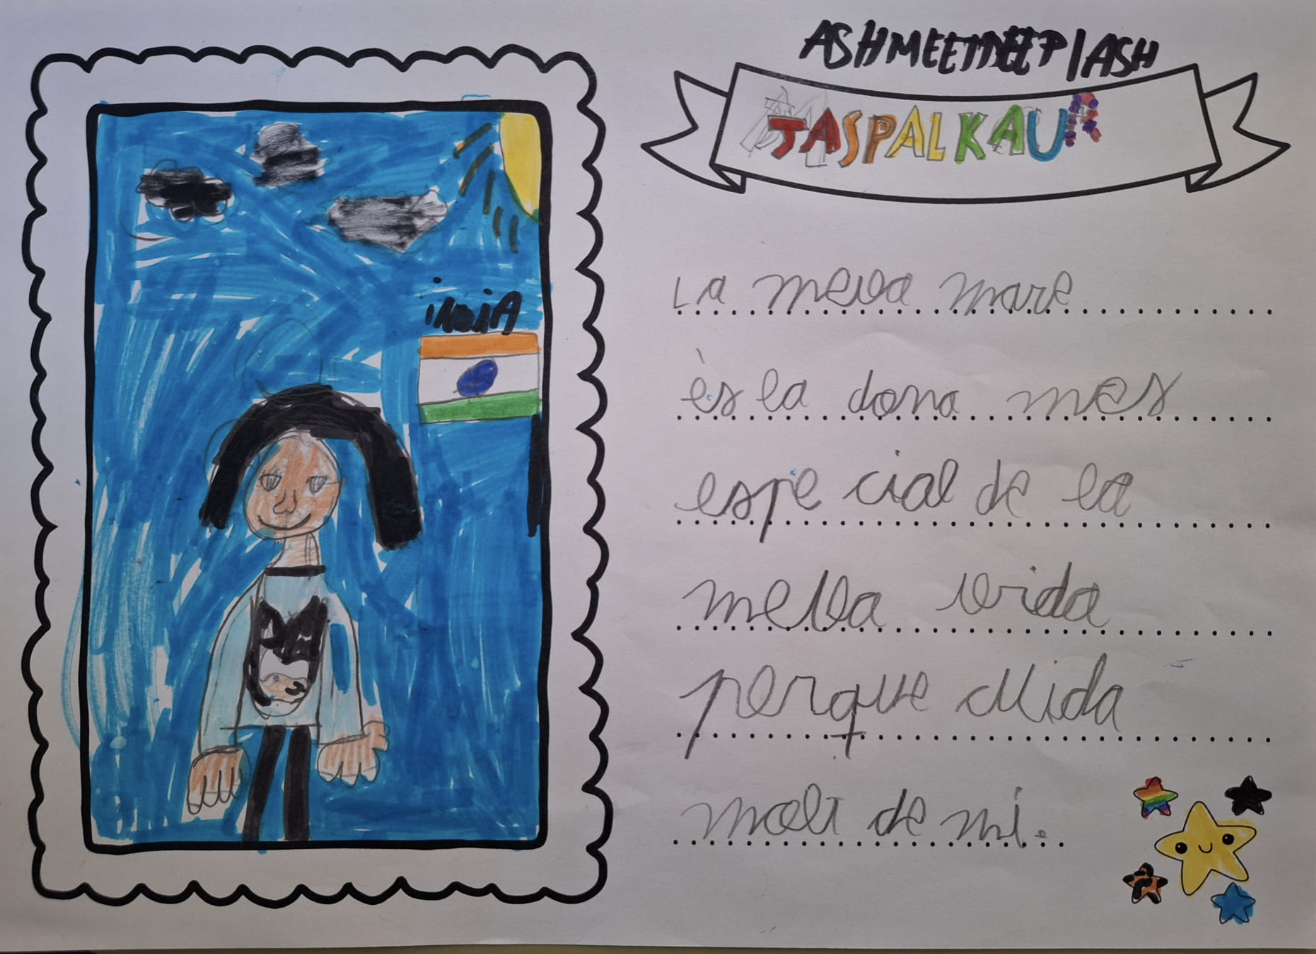 ASHMEETDEEP/ASH
JASPAL KAUR
INDIA
La meva mare
és la dona mes
espe cial de la
meva vida
perque cuida
molt de mi.